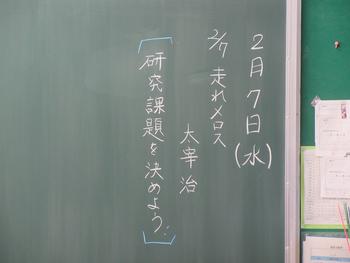 2月7日(水)
2/7 走れメロス
太宰治
研究課題を決めよう。